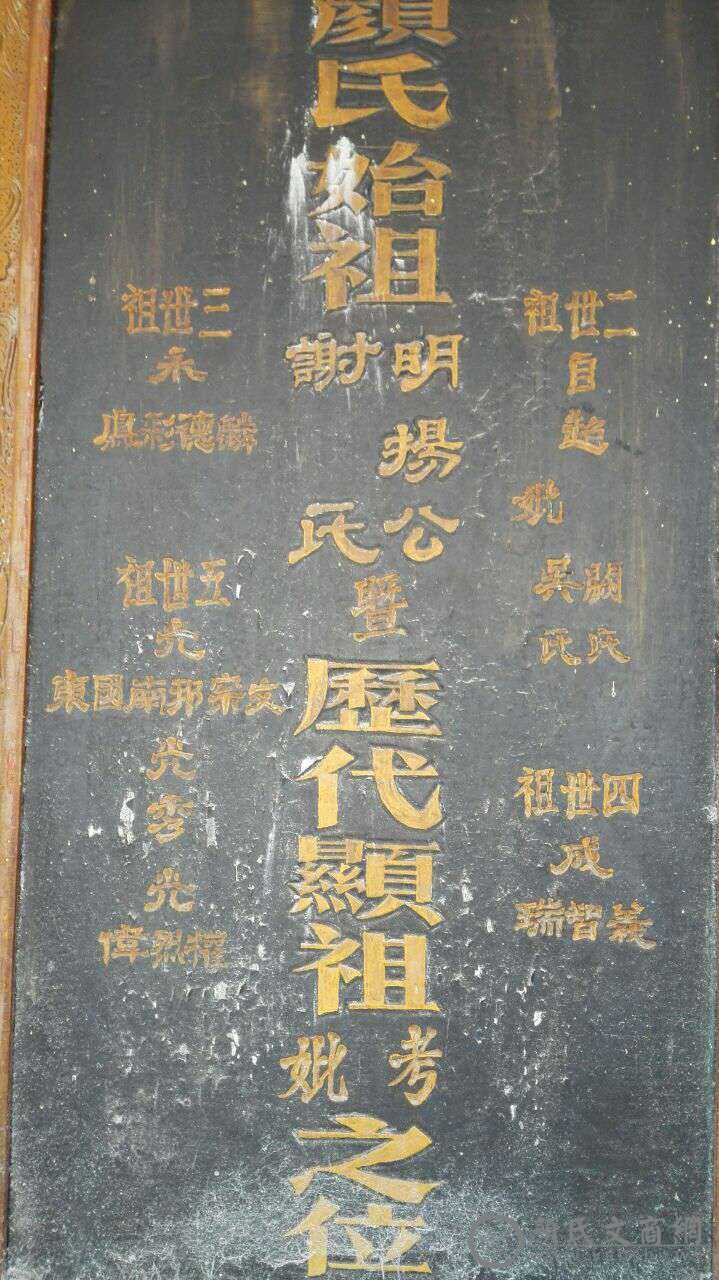 顏氏始祖
明揚公
謝氏
暨
歷代顯祖
考妣
之位
二世祖
自
妣
闕氏
吳氏
四世祖
成
義智瑞
三世祖
永
麟德彩
五世祖
文宗邦南國東
光秀光
耀烈偉